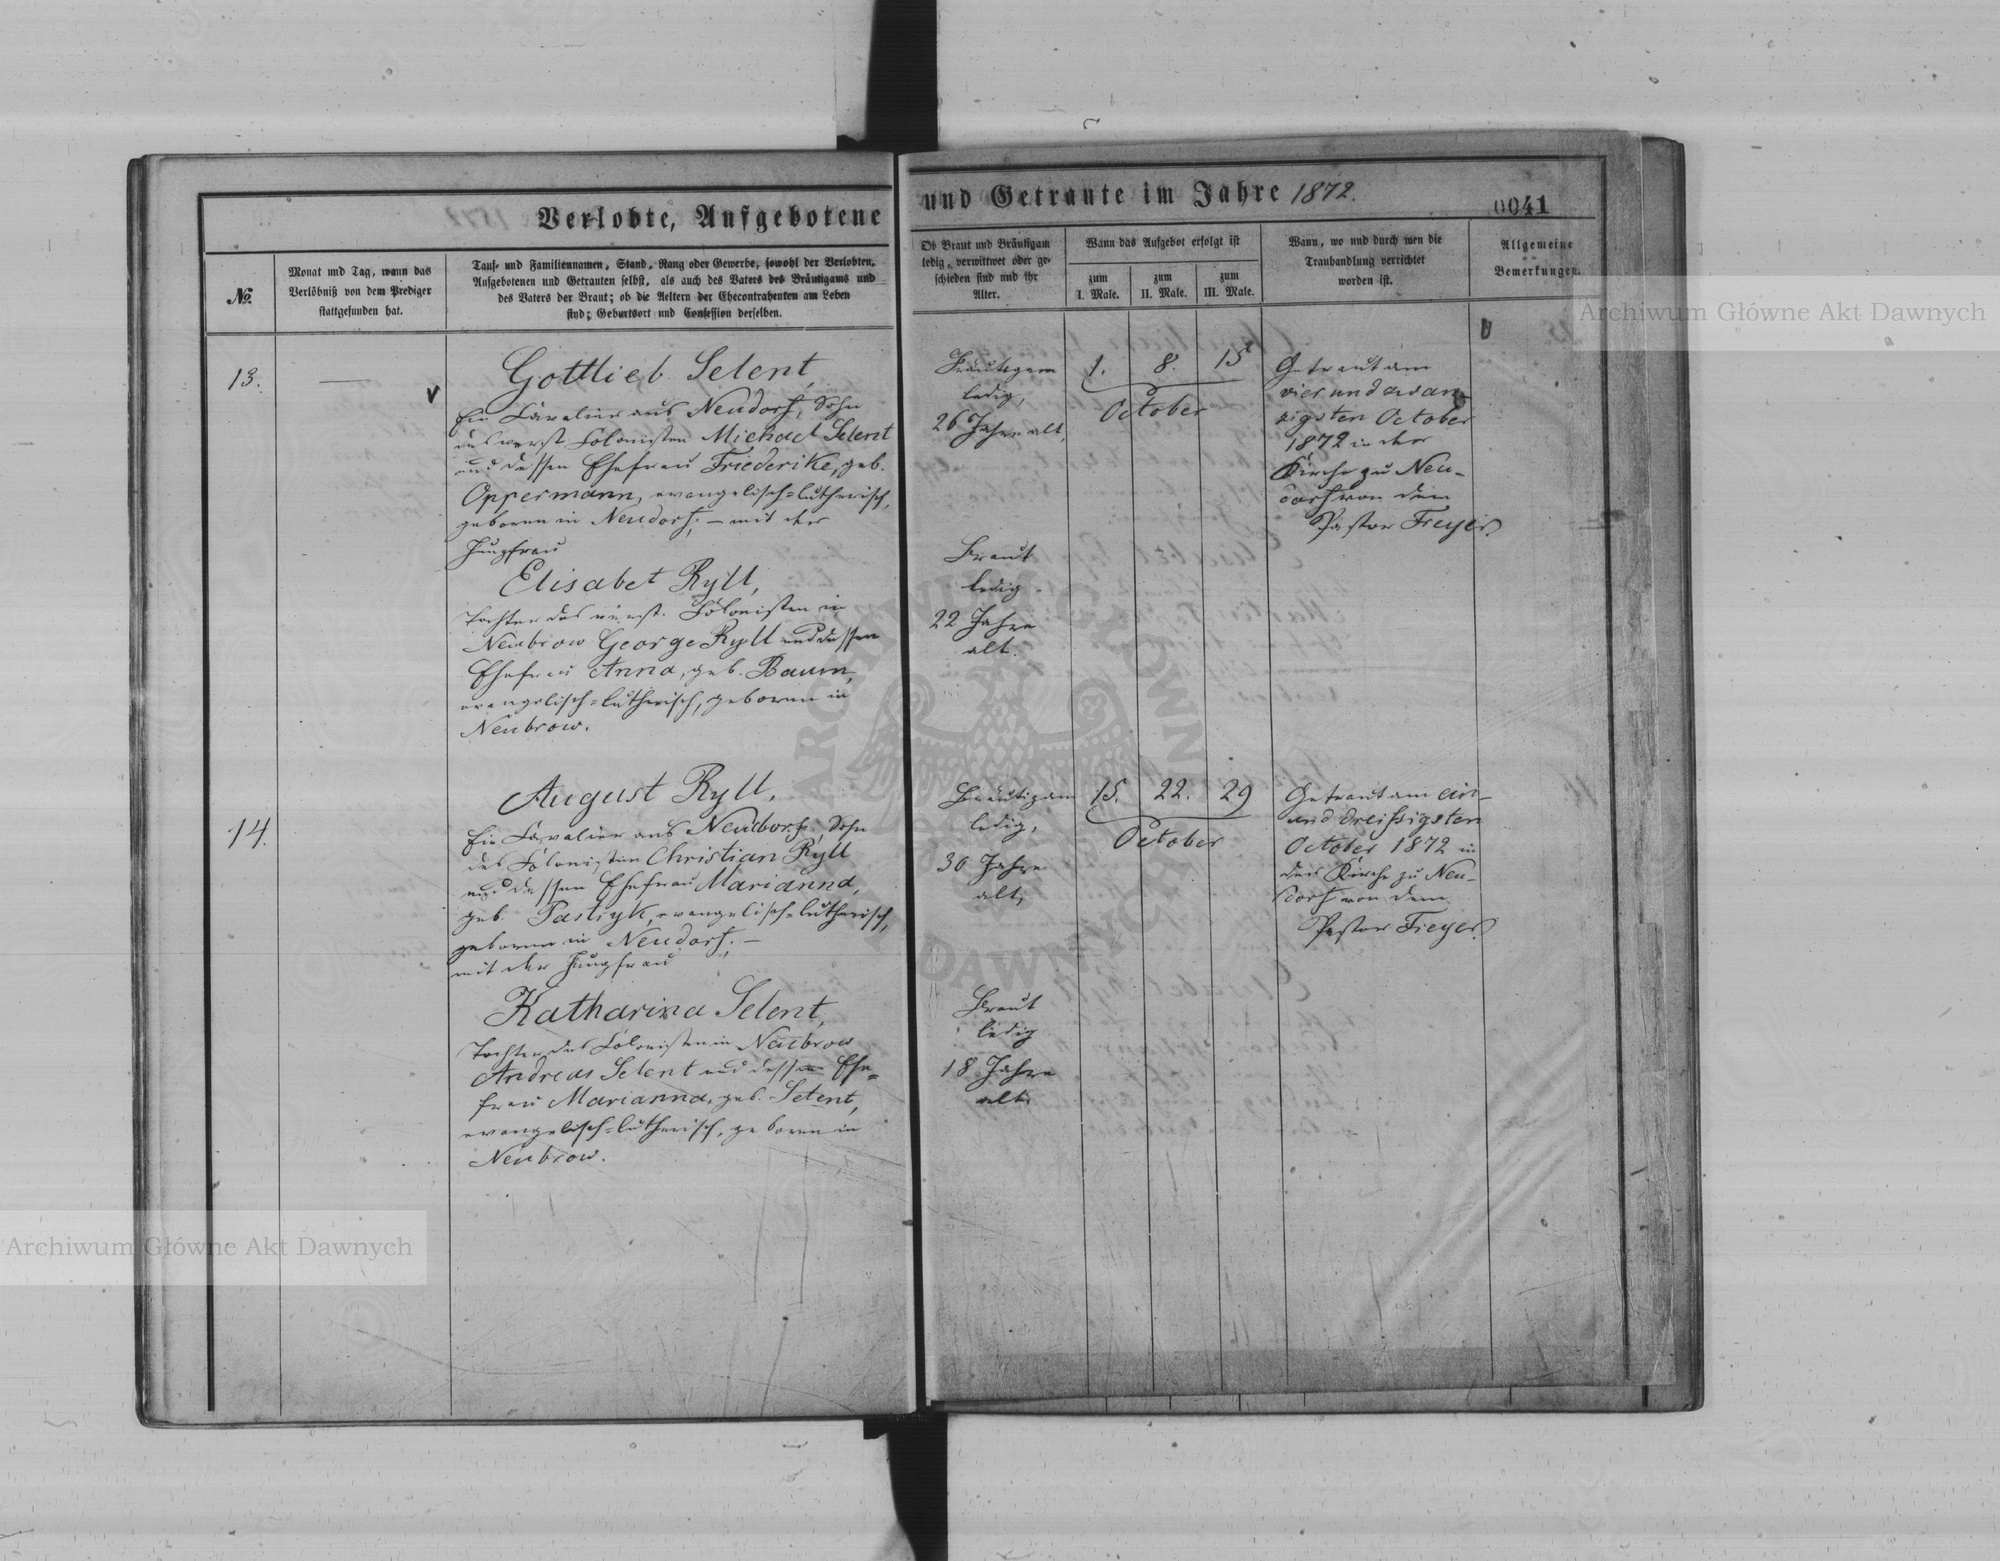 Verlobte, Aufgebotene
und Getraute im Jahre 1872.
0041
№.
Monat und Tag, wann das
Verlöbniß von dem Prediger
stattgefunden hat.
Tauf- und Familiennamen, Stand, Rang oder Gewerbe, sowohl der Verlobten,
Aufgebotenen und Getrauten selbst, als auch des Vaters des Bräutigams und
des Vaters der Braut; ob die Aeltern der Ehecontrahenten am Leben
sind; Geburtsort und Confession derselben.
Ob Braut und Bräutigam
ledig, verwittwet oder ge-
schieden sind und ihr
Alter.
Wann das Aufgebot erfolgt ist
zum
I. Male.
zum
II. Male.
zum
III. Male.
Wann, wo und durch wen die
Trauhandlung verrichtet
worden ist.
Allgemeine
Bemerkungen.
13.
Gottlieb Selent,
Ein Cavalier aus Neudorf, Sohn
des Colonisten Michael Selent
und dessen Ehefrau Friederike, geb.
Oppermann, evangelisch=lutherisch,
geboren in Neudorf; – mit der
Jungfrau
Elisabet Ryll,
Tochter des Colonisten in
Neubrow George Ryll und dessen
Ehefrau Anna, geb. Baum,
evangelisch=lutherisch, geboren in
Neubrow.
Bräutigam
ledig,
26 Jahre alt,
Braut
ledig
22 Jahre
alt.
1. 8. 15
October
Getraut am
vier und zwan-
zigsten October
1872 in der
Kirche zu Neu-
dorf von dem
Pastor Freyer.
14.
August Ryll,
Ein Cavalier aus Neudorf, Sohn
des Colonisten Christian Ryll
und dessen Ehefrau Marianna,
geb. Pastryk, evangelisch=lutherisch,
geboren in Neudorf; –
mit der Jungfrau
Katharina Selent,
Tochter des Colonisten in Neubrow
Andreas Selent und dessen Ehe=
frau Marianna, geb. Selent,
evangelisch=lutherisch, geboren in
Neubrow.
Bräutigam
ledig,
30 Jahre
alt,
Braut
ledig
18 Jahre
alt.
15. 22. 29
October
Getraut am ein-
und dreißigsten
October 1872 in
der Kirche zu Neu-
dorf von dem
Pastor Freyer.
Archiwum Główne Akt Dawnych
Archiwum Główne Akt Dawnych
ARCHIWUM GŁÓWNE AKT DAWNYCH